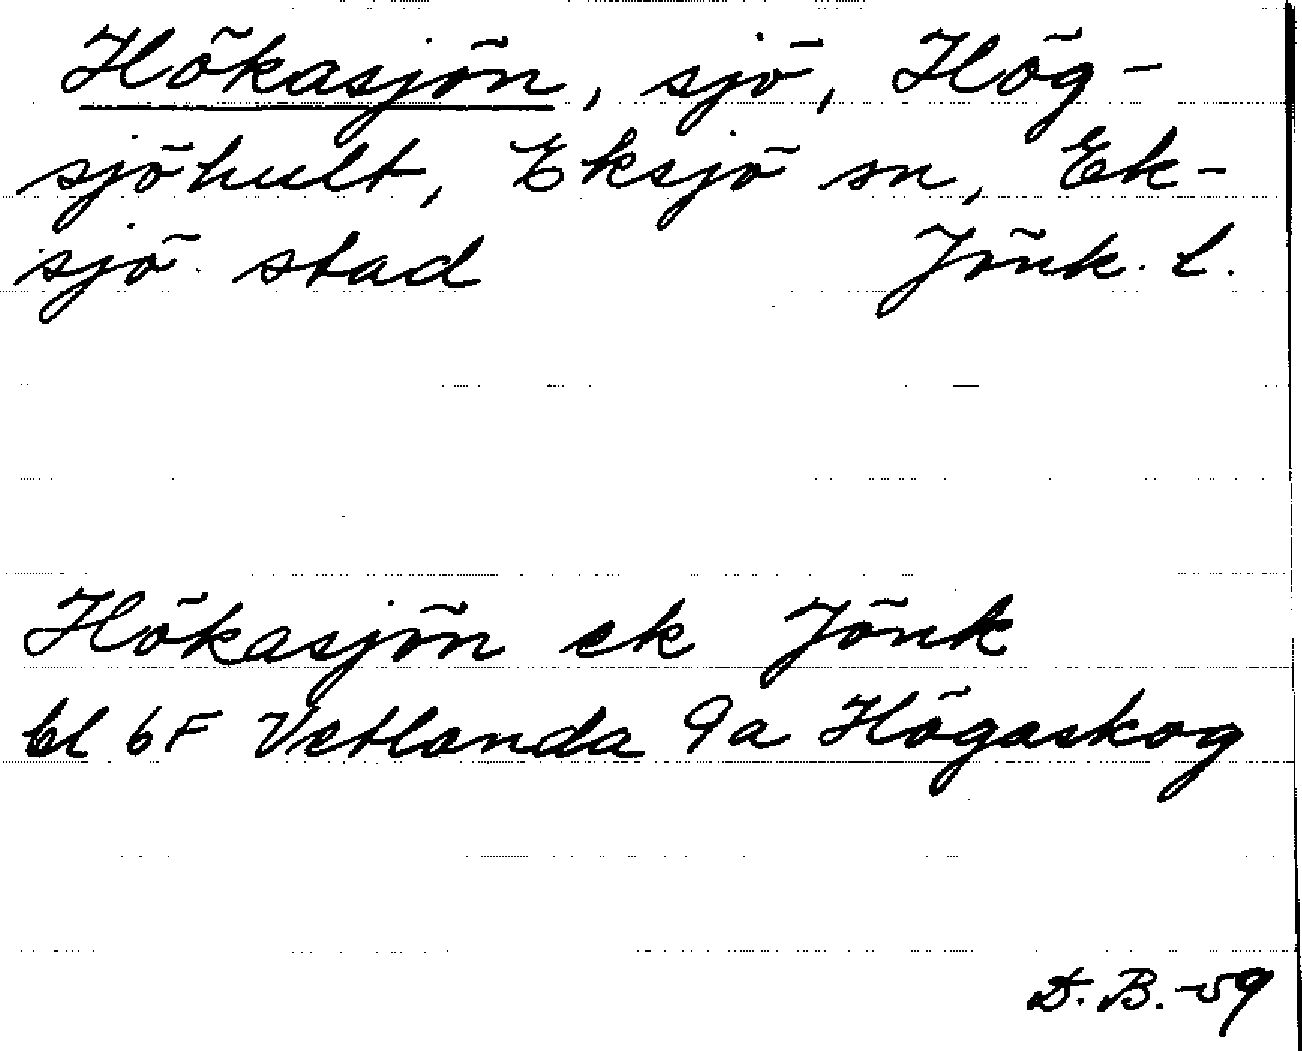 Hökasjön, sjö, Hög-
sjöhult, Eksjö sn, Ek-
sjö stad Jönk. L.
Hökasjön ek Jönk
bl 6F Vetlanda 9a Högaskog
D.B.-59